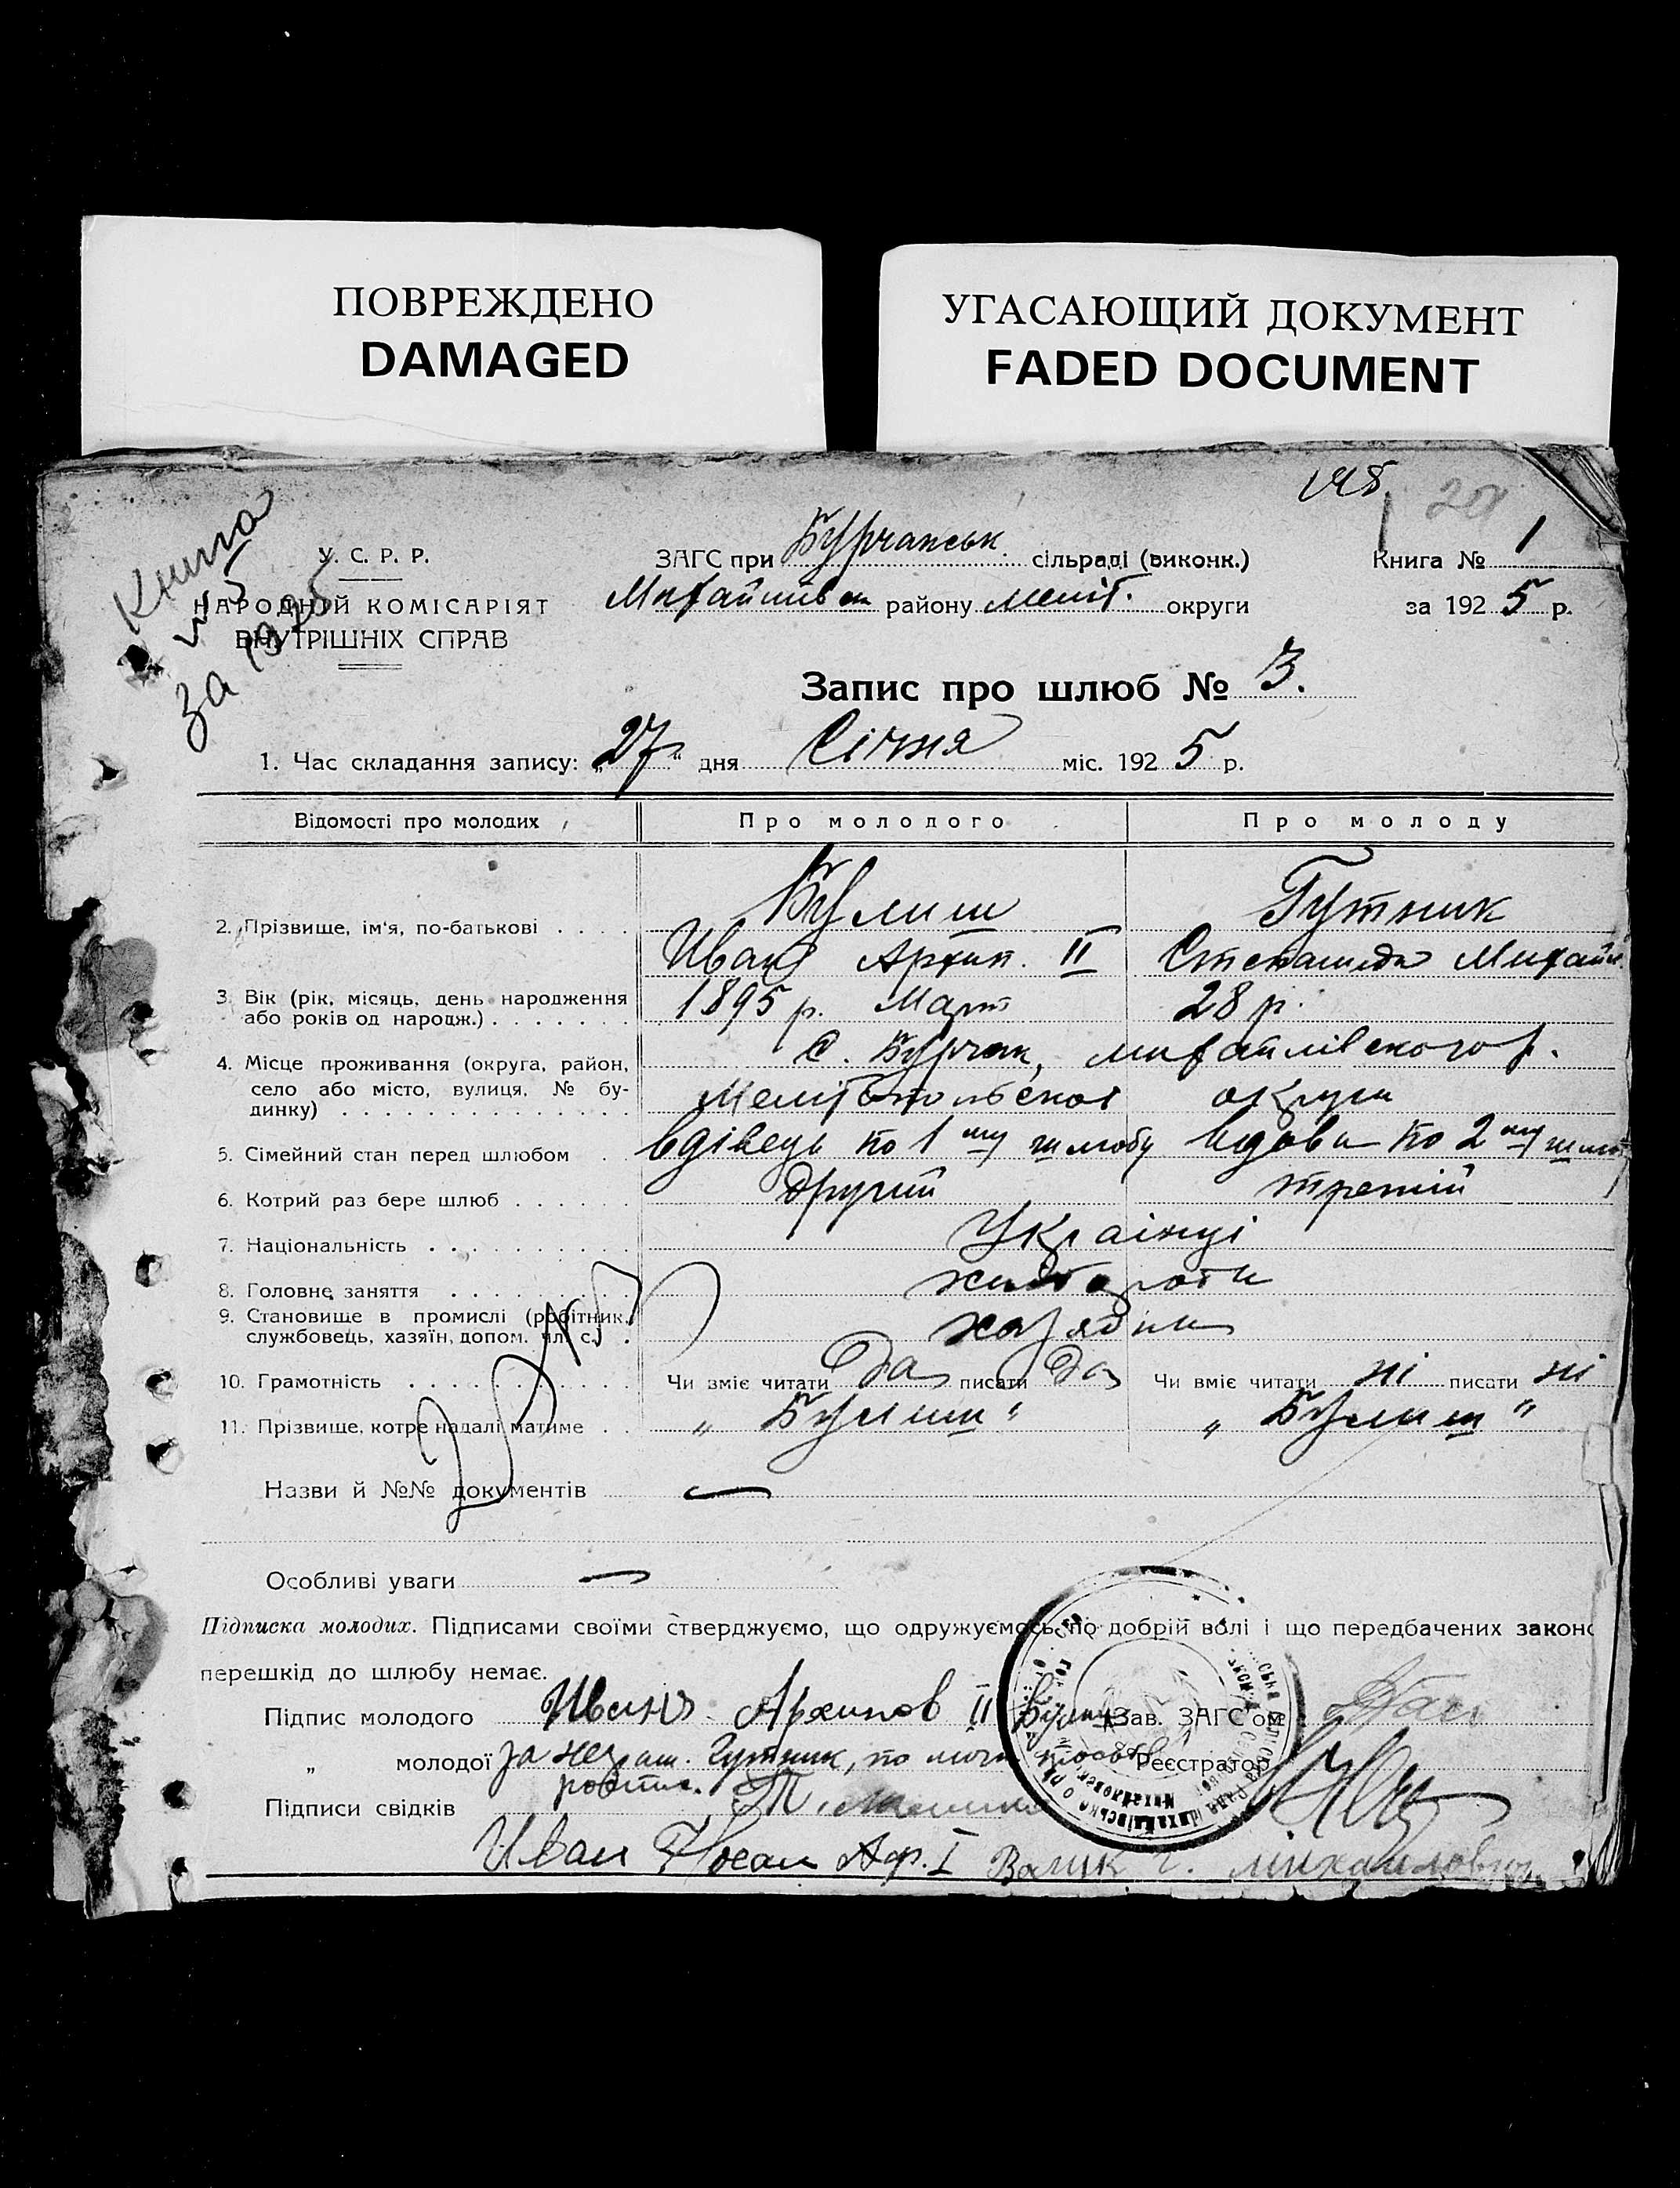 ПОВРЕЖДЕНО
DAMAGED
УГАСАЮЩИЙ ДОКУМЕНТ
FADED DOCUMENT
Книга
№ 5
за 1925
У. С. Р. Р.
НАРОДНІЙ КОМІСАРІЯТ
ВНУТРІШНІХ СПРАВ
ЗАГС при Бурчанськ сільраді (виконк.)
Михайлівськ району Меліт. округи
Книга № 1
за 1925 р.
Запис про шлюб № 3.
1. Час складання запису: „27" дня Січня міс. 1925 р.
Відомості про молодих
Про молодого
Про молоду
2. Прізвище, ім'я, по-батькові . . . .
Булиш
Иван Архип. II
Гутник
Степанида Михайл.
3. Вік (рік, місяць, день народження
або років од народж.) . . . . . . .
1895 р. Март
28 р.
4. Місце проживання (округа, район,
село або місто, вулиця, № бу-
динку) . . . . . . . . . . . . . .
с. Бурчак, Михайлівского р.
Мелітопольскоі округи
5. Сімейний стан перед шлюбом . .
вдівець по 1му шлюбу
вдова по 2му
6. Котрий раз бере шлюб . . . . . .
другий
третій
7. Національність . . . . . . . . . .
Украінці
8. Головне заняття . . . . . . . . .
9. Становище в промислі (робітник,
службовець, хазяїн, допом. чл. с.) .
10. Грамотність . . . . . . . . . . . .
Чи вміє читати Да писати Да
Чи вміє читати ні писати ні
11. Прізвище, котре надалі матиме . .
„ Булиш "
„ Булиш "
Назви й №№ документів
Особливі уваги
Підписка молодих. Підписами своїми стверджуємо, що одружуємось по добрій волі і що передбачених законо
перешкід до шлюбу немає.
Підпис молодого Иванъ Архипов II Булиш
Зав. ЗАГС'ом
„ молодої за неграм. Гутник, по
Реєстратор
Підписи свідків
Иван Носан Аф. I